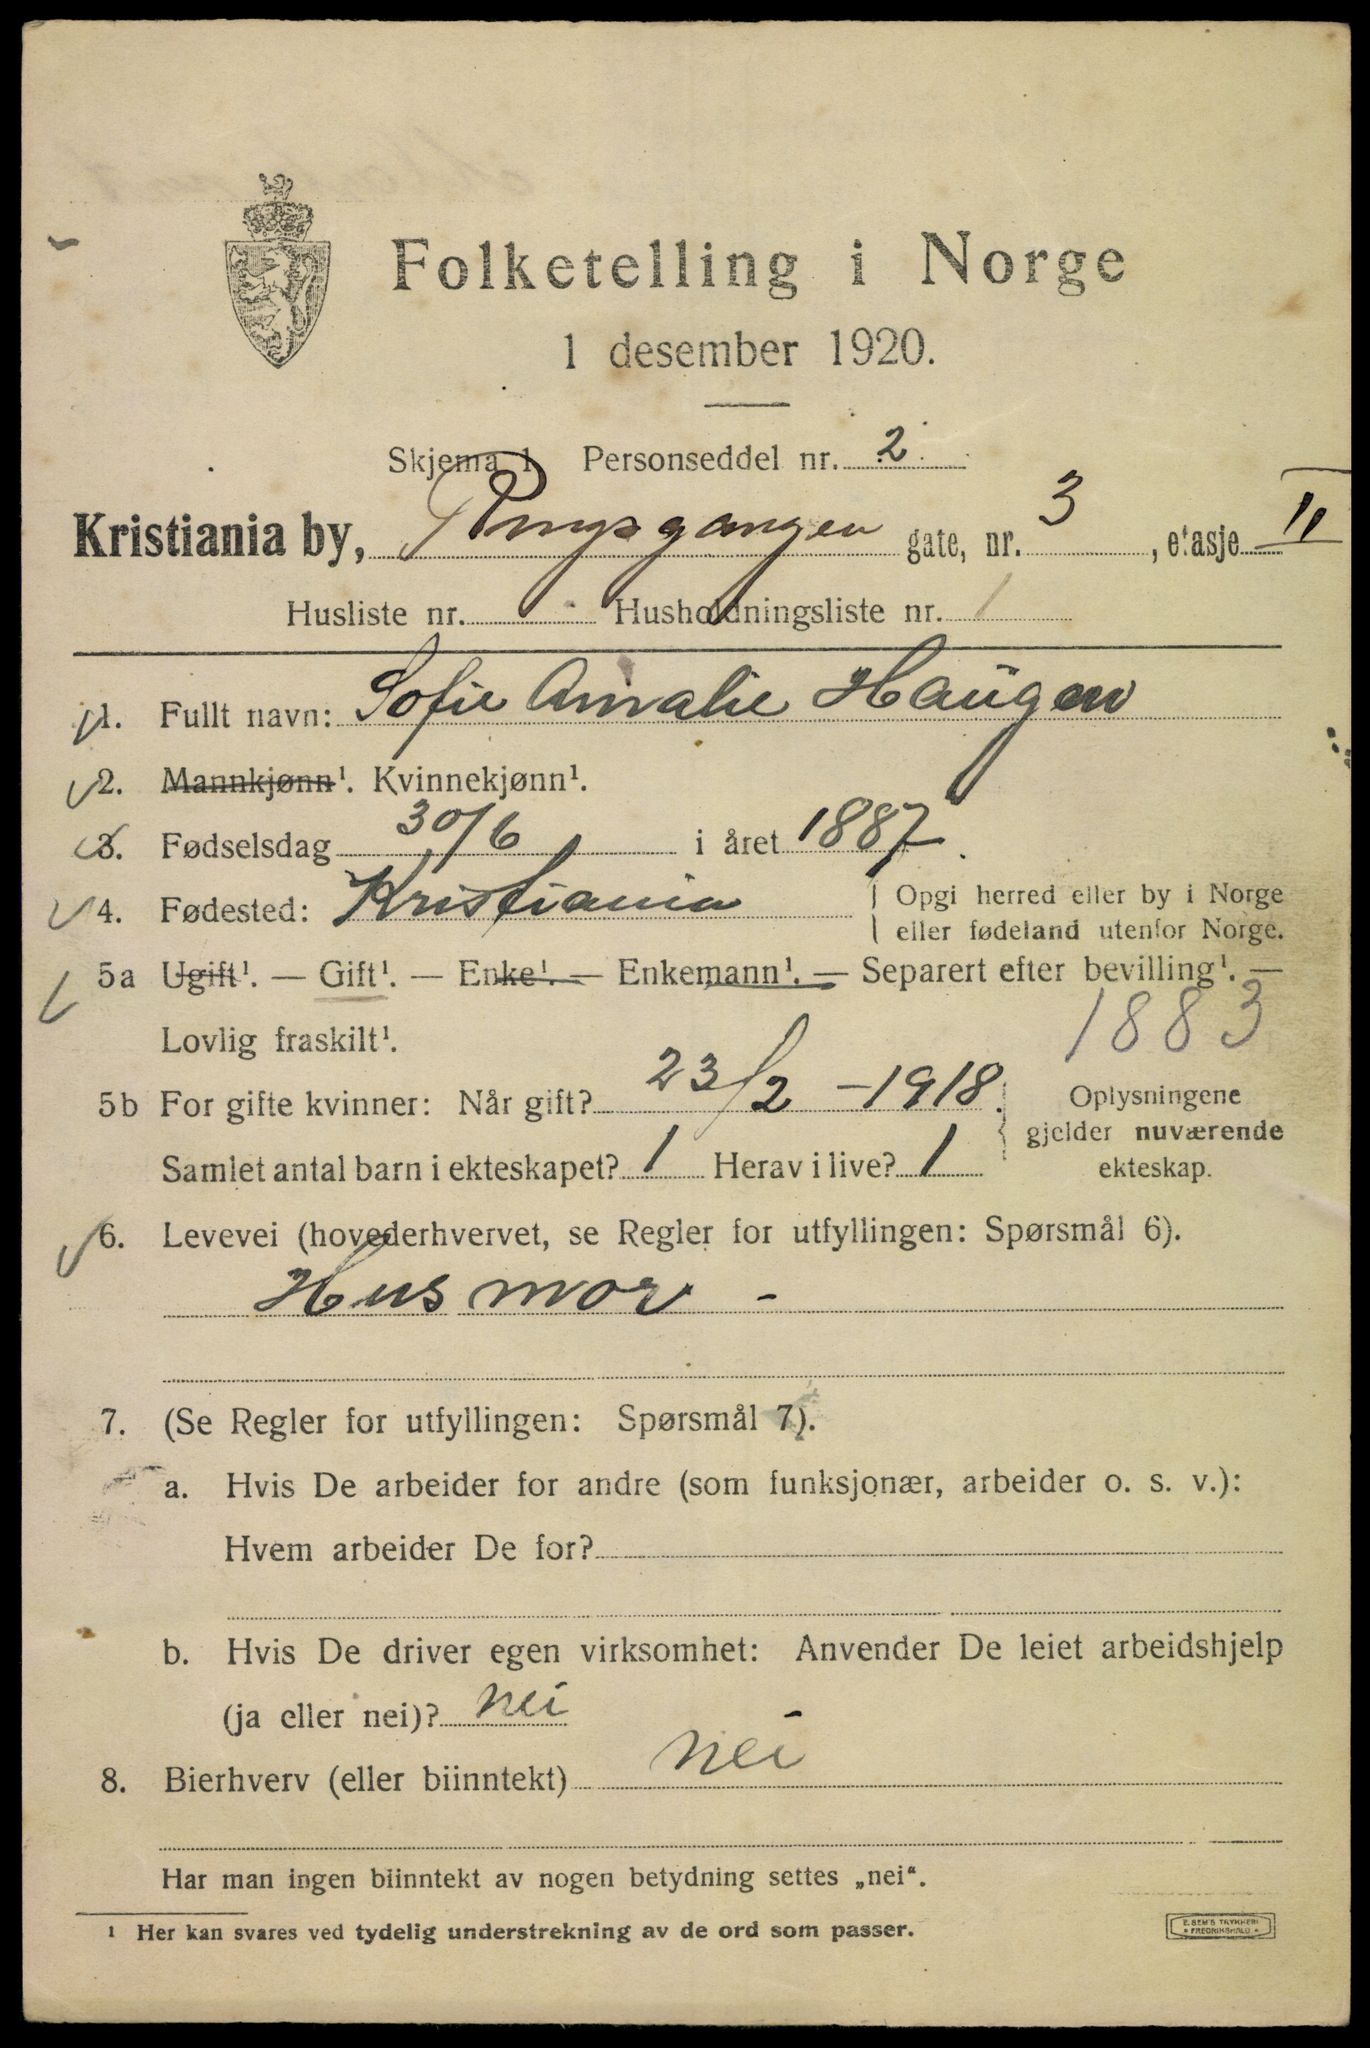 Folketelling i Norge
1 desember 1920.
Skjema 1. Personseddel nr. 2
Kristiania by, gate, nr. 3, etasje II
Husliste nr. Husholdningsliste nr. 1
1. Fullt navn: Sofie Amalie Haugen
2. Mannkjønn¹. Kvinnekjønn¹.
3. Fødselsdag 30/6 i året 1887.
4. Fødested: Kristiania Opgi herred eller by i Norge
eller fødeland utenfor Norge.
5a Ugift¹. — Gift¹. — Enke¹. — Enkemann¹. — Separert efter bevilling¹. —
Lovlig fraskilt¹. 1883
5b For gifte kvinner: Når gift? 23/2 – 1918. Oplysningene
gjelder nuværende
Samlet antal barn i ekteskapet? 1 Herav i live? 1 ekteskap.
6. Levevei (hovederhvervet, se Regler for utfyllingen: Spørsmål 6).
Husmor -
7. (Se Regler for utfyllingen: Spørsmål 7).
a. Hvis De arbeider for andre (som funksjonær, arbeider o. s. v.):
Hvem arbeider De for?
b. Hvis De driver egen virksomhet: Anvender De leiet arbeidshjelp
(ja eller nei)? nei
8. Bierhverv (eller biinntekt) nei
Har man ingen biinntekt av nogen betydning settes „nei“.
¹ Her kan svares ved tydelig understrekning av de ord som passer.
E. SEM'S TRYKKERI
FREDRIKSHALD